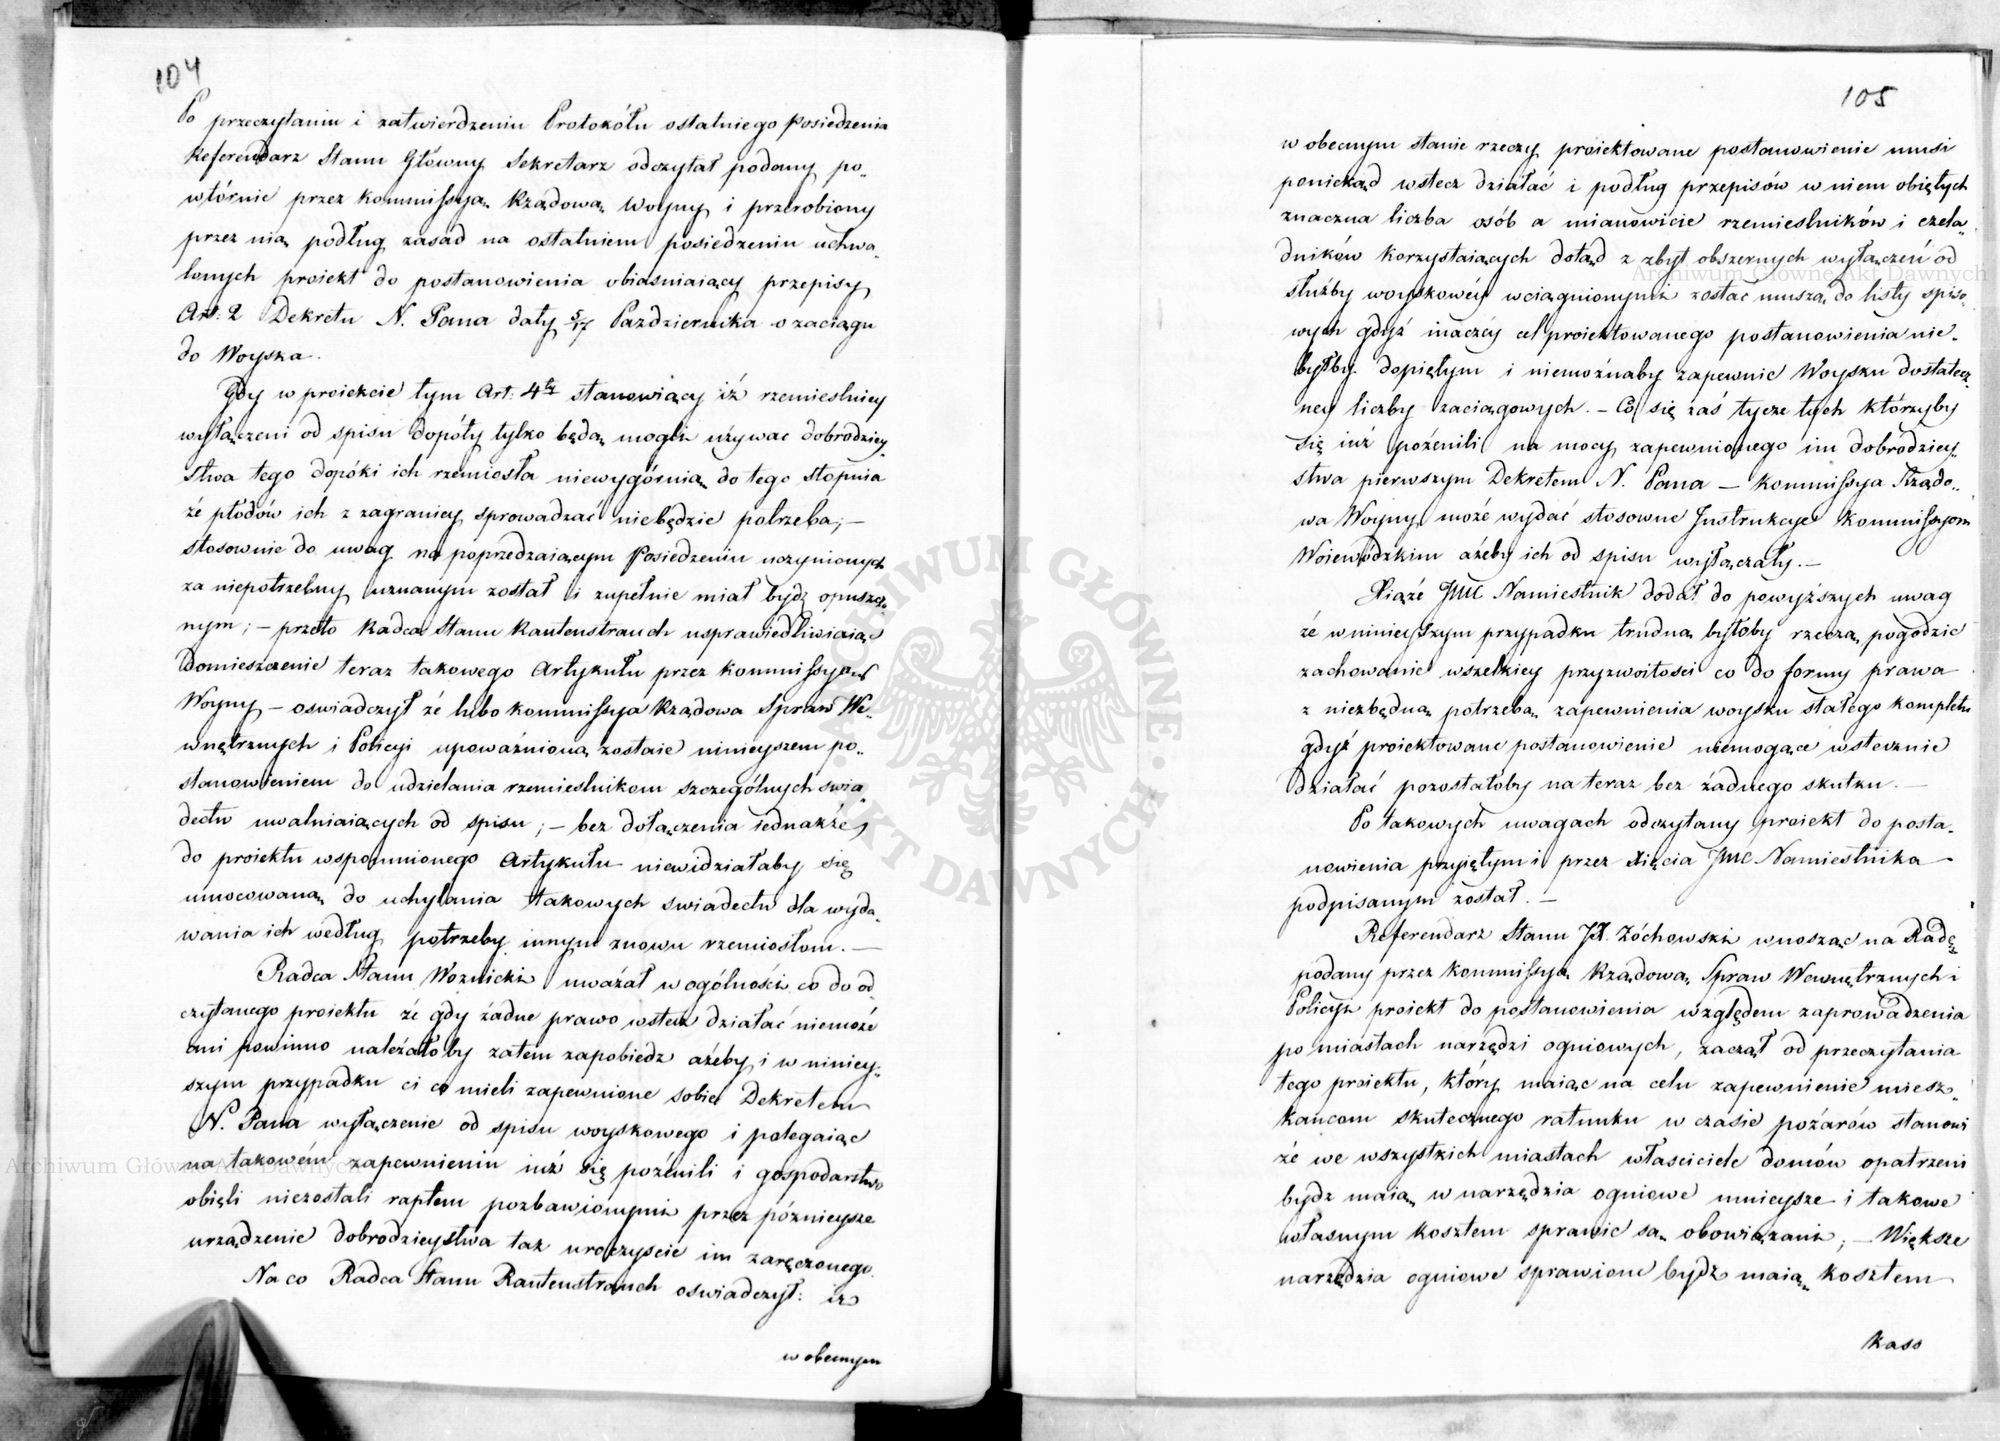 104
Po przeczytaniu i zatwierdzeniu Protokółu ostatniego Posiedzenia
Referendarz Stanu Główny Sekretarz odczytał podany po„
wtórnie przez Kommissyą Rządową Woyny i przerobiony
przez nią podług zasad na ostatniem posiedzeniu uchwa„
lonych proiekt do postanowienia obiaśniaiący przepisy
Art: 2 Dekretu N. Pana daty 5/17 Października o zaciągu
do Woyska.
Gdy w proiekcie tym Art: 4ty stanowiący iż rzemieslnicy
wyłączeni od spisu dopóty tylko będą mogli używac dobrodziey„
stwa tego dopóki ich rzemiosła niewygórnią do tego stopnia
że płodów ich z zagranicy sprowadzać niebędzie potrzeba; —
stosownie do uwag na poprzedzaiącym Posiedzeniu uczynionych
za niepotrzebny uznanym został i zupełnie miał bydz opuszczo„
nym; — przeto Radca Stanu Rautenstrauch usprawiedliwiaiąc
domieszczenie teraz takowego Artykułu przez Kommissyą
Woyny — oswiadczył że lubo Kommissya Rządowa Spraw We„
wnętrznych i Policyi upoważnioną zostaie ninieyszem po„
stanowieniem do udzielania rzemieslnikom szczególnych swia„
dectw uwalniaiących od spisu; — bez dołączenia iednakże
do proiektu wspomnionego Artykułu niewidziałaby się
umocowaną do uchylania takowych swiadectw dla wyda„
wania ich według potrzeby innym znowu rzemiosłom. —
Radca Stanu Woznicki uważał w ogólności co do od„
czytanego proiektu że gdy żadne prawo wstecz działać niemoże
ani powinno należałoby zatem zapobiedz ażeby i w niniey„
szym przypadku ci co mieli zapewnione sobie Dekretem
N. Pana wyłączenie od spisu woyskowego i polegaiąc
na takowém zapewnieniu iuż się pożenili i gospodarstwo
obięli niezostali raptem pozbawionymi przez późnieysze
urządzenie dobrodzieystwa tak uroczyscie im zaręczonego.
Na co Radca Stanu Rautenstrauch oswiadczył: iż
w obecnym
105
w obecnym stanie rzeczy proiektowane postanowienie musi
poniekąd wstecz działać i podług przepisów w niem obiętych
znaczna liczba osób a mianowicie rzemieslników i czela„
dników korzystaiących dotąd z zbyt obszernych wyłączeń od
służby woyskowéy wciągnionymi zostać muszą do listy spiso„
wych gdyż inaczéy cel proiektowanego postanowienia nie„
byłby dopiętym i niemożnaby zapewnić Woysku dostatecz„
ney liczby zaciągowych. — Co się zaś tycze tych którzyby
się iuż pożenili na mocy zapewnionego im dobrodziey„
stwa pierwszym Dekretem N. Pana — Kommissya Rządo„
wa Woyny może wydać stosowne Instrukcye Kommissyom
Woiewódzkim ażeby ich od spisu wyłączały. —
Xiąże JMC Namiestnik dodał do powyższych uwag
że w ninieyszym przypadku trudną byłoby rzeczą pogodzic
zachowanie wszelkiey przyzwoitości co do formy prawa
z niezbędną potrzebą zapewnienia woysku stałego kompletu
gdyż proiektowane postanowienie niemogące wstecznie
działać pozostałoby na teraz bez żadnego skutku. —
Po takowych uwagach odczytany proiekt do posta„
nowienia przyiętym i przez Xięcia JMC Namiestnika
podpisanym został. —
Referendarz Stanu JX. Żóchowski wnosząc na Radę
podany przez Kommissyą Rządową Spraw Wewnętrznych i
Policyi proiekt do postanowienia względem zaprowadzenia
po miastach narzędzi ogniowych, zaczął od przeczytania
tego proiektu, który maiąc na celu zapewnienie miesz„
kańcom skutecznego ratunku w czasie pożarów stanowi
że we wszystkich miastach właściciele domów opatrzeni
bydz maią w narzędzia ogniowe mnieysze i takowe
własnym kosztem sprawic są obowiązani; — Większe
narzędzia ogniowe sprawione bydz maią kosztem
Kass
Archiwum Główne Akt Dawnych
Archiwum Główne Akt Dawnych
ARCHIWUM GŁÓWNE AKT DAWNYCH